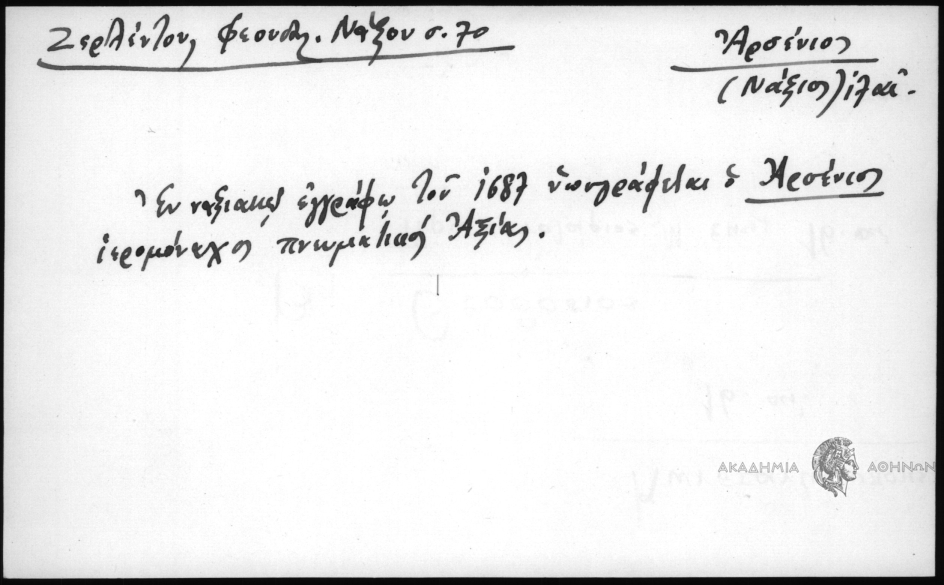 Ζερλέντου, Φεουδ. Νάξου σ. 70
Ἀρσένιος
(Νάξιος)
Ἐν ναξιακῷ ἐγγράφῳ τοῦ 1687 ὑπογράφεται ὁ Ἀρσένιος
ἱερομόναχος πνευματικός Ἀξίας.
ΑΚΑΔΗΜΙΑ ΑΘΗΝΩΝ